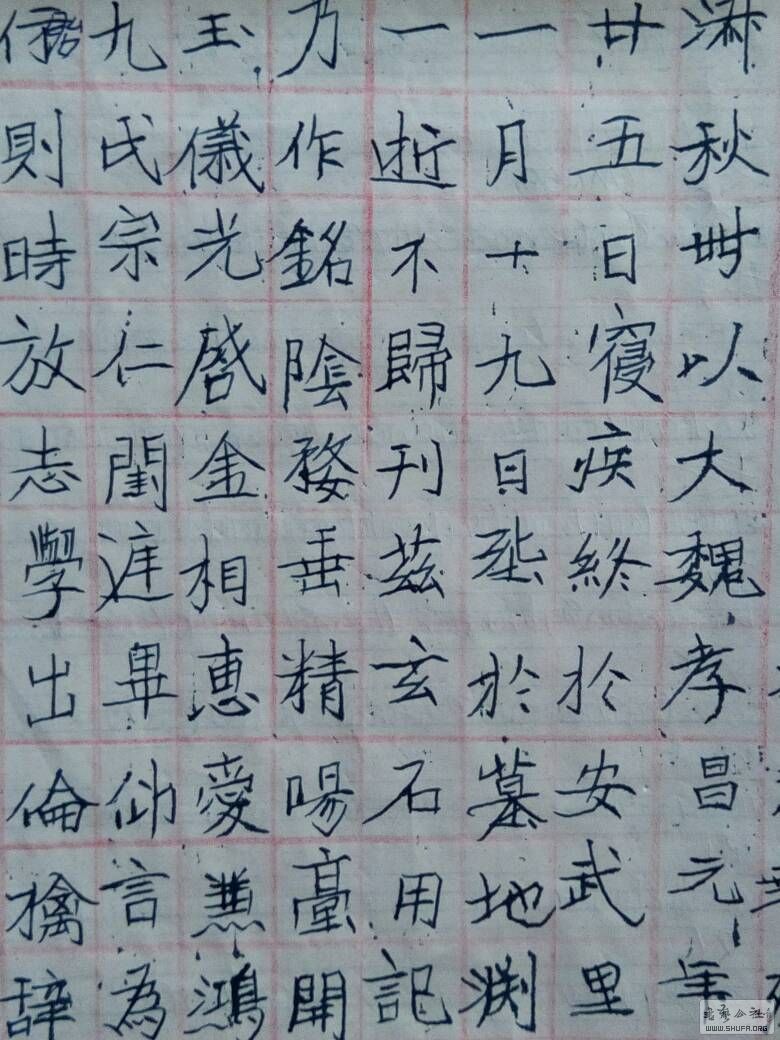 秋卌以大魏孝昌元年
廿五日寢疾終於安武里
一月十九日於墓地渕
一逝不歸刊茲玄石用記
乃作銘陰婺垂精暘臺開
玉儀光啓金相惠愛鴻
九氏宗仁閨仰言為
則時放志學出倫擒辞
WWW.SHUFA.ORG